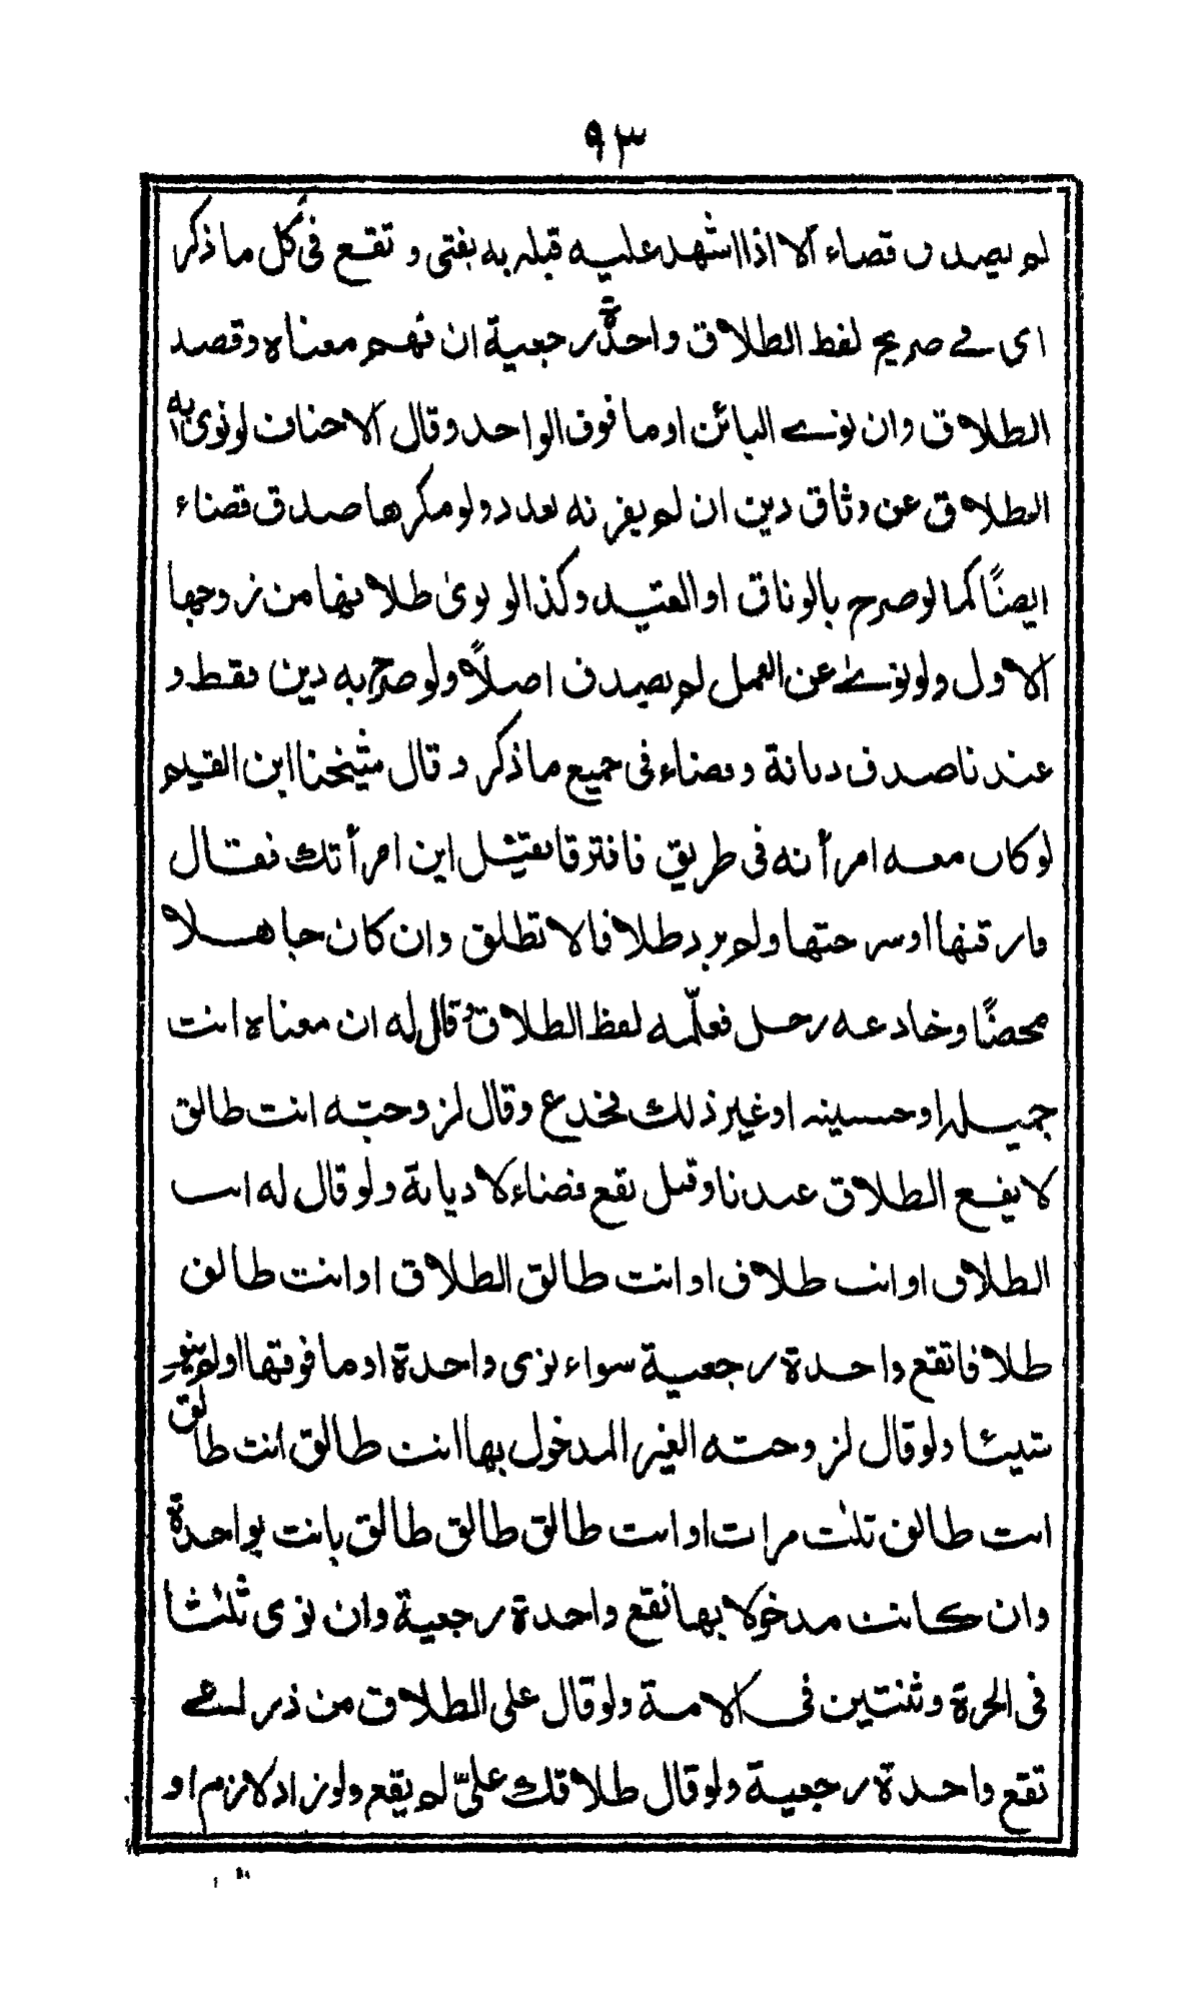 ٩٣
لم يصدق قضاء الا اذا اشهد عليه قبله به يفتى و تقع فى كل ما ذكر
اى فے صريح لفظ الطلاق واحدة رجعية ان فهم معناه وقصد
الطلاق وان نوے البائن او ما فوق الواحد وقال الاحناف لو نوى به
الطلاق عن وثاق دين ان لم يقرنه بعدد ولو مكرها صدق قضاء
ايضًا كما لو صرح بالوثاق او القيد وكذا لو نوى طلاقها من زوجها
الاول ولو نوے عن العمل لم يصدق اصلاً ولو صرح به دين فقط و
عندنا صدق ديانة وقضاء فى جميع ما ذكر و قال شيخنا ابن القيم
لو كان معه امرأته فى طريق فافترقا فقيل اين امرأتك فقال
فارقتها او سرحتها ولم يرد طلاقا لا تطلق وان كان جاهلا
محضًا وخادعه رجل فعلّمه لفظ الطلاق وقال له ان معناه انت
جميله او حسينه او غير ذلك فخدع وقال لزوجته انت طالق
لا يقع الطلاق عندنا وقيل يقع قضاء لا ديانة ولو قال له انت
الطلاق او انت طلاق او انت طالق الطلاق او انت طالق
طلاقا تقع واحدة رجعية سواء نوى واحدة او ما فوقها او لم ينو
شيئا ولو قال لزوجته الغير المدخول بها انت طالق انت طالق
انت طالق ثلث مرات او انت طالق طالق طالق بانت بواحدة
وان كانت مدخولا بها تقع واحدة رجعية وان نوى ثلثا
فى الحرة وثنتين فى الامة ولو قال على الطلاق من ذراعے
تقع واحدة رجعية ولو قال طلاقك علىّ لم يقع ولو زاد لازم او